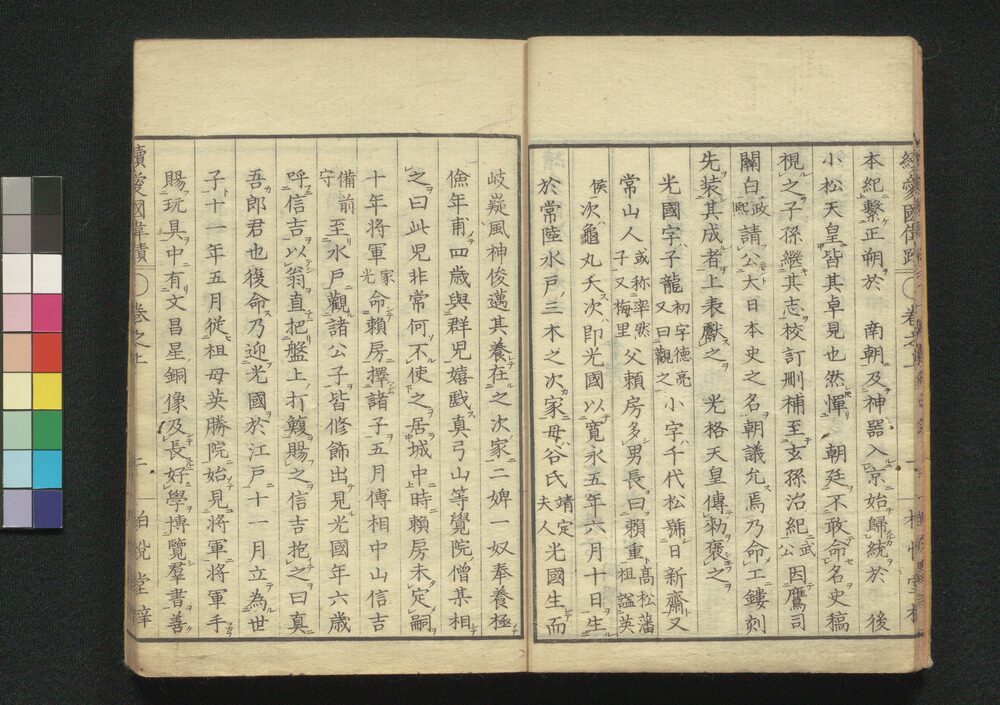 本紀繫正朔於　南朝及神器入京始歸統於　後
小松天皇皆其卓見也然憚　朝廷不敢命名史稿
視之子孫繼其志校訂刪補至玄孫治紀武公因鷹司
關白政熙請公大日本史之名朝議允焉乃命工鏤刻
先裝其成者上表獻之　光格天皇傳勅褒之
光國字子龍初字德亮又曰觀之小字千代松號日新齋又
常山人或稱率然子又梅里父賴房多男長曰賴重高松藩祖謚英
侯次龜丸夭次即光國以寬永五年六月十日生
於常陸水戶三木之次家母谷氏靖定夫人光國生而
岐嶷風神俊邁其養在之次家二婢一奴奉養極
儉年甫四歲與群兒嬉戲真弓山等覺院僧某相
之曰此兒非常何不使之居城中時賴房未定嗣
十年將軍家光命賴房擇諸子五月傅相中山信吉
備前守至水戶觀諸公子皆修飾出見光國年六歲
呼信吉以翁直把盤上打鰒賜之信吉抱之曰真
吾郎君也復命乃迎光國於江戶十一月立為世
子十一年五月從祖母英勝院始見將軍將軍手
賜玩具中有文昌星銅像及長好學博覽羣書善
續愛國偉績　卷之上